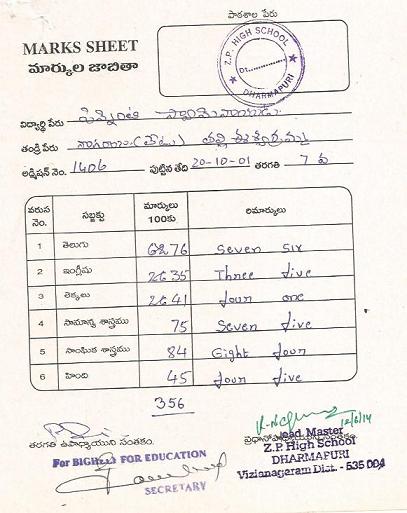 పాఠశాల పేరు
MARKS SHEET
మార్కుల జాబితా
Z.P. HIGH SCHOOL
Dt.
DHARMAPURI
విద్యార్థి పేరు
తండ్రి పేరు నాగరాజు (లేటు) తల్లి ఈశ్వరమ్మ
అడ్మిషన్ నెం. 1406 పుట్టిన తేది 20-10-01 తరగతి 7 వ
వరుస నెం. సబ్జక్టు మార్కులు 100కు రిమార్కులు
1 తెలుగు 76 Seven Six
2 ఇంగ్లీషు 35 Three five
3 లెక్కలు 41 four one
4 సామాన్య శాస్త్రము 75 Seven five
5 సాంఘిక శాస్త్రము 84 Eight four
6 హింది 45 four five
356
12/6/14
తరగతి ఉపాధ్యాయుని సంతకం. ప్రధానోపాధ్యాయుని సంతకం.
For BIGHELP FOR EDUCATION
SECRETARY
Head Master
Z.P. High School
DHARMAPURI
Vizianagaram Dist. - 535 004